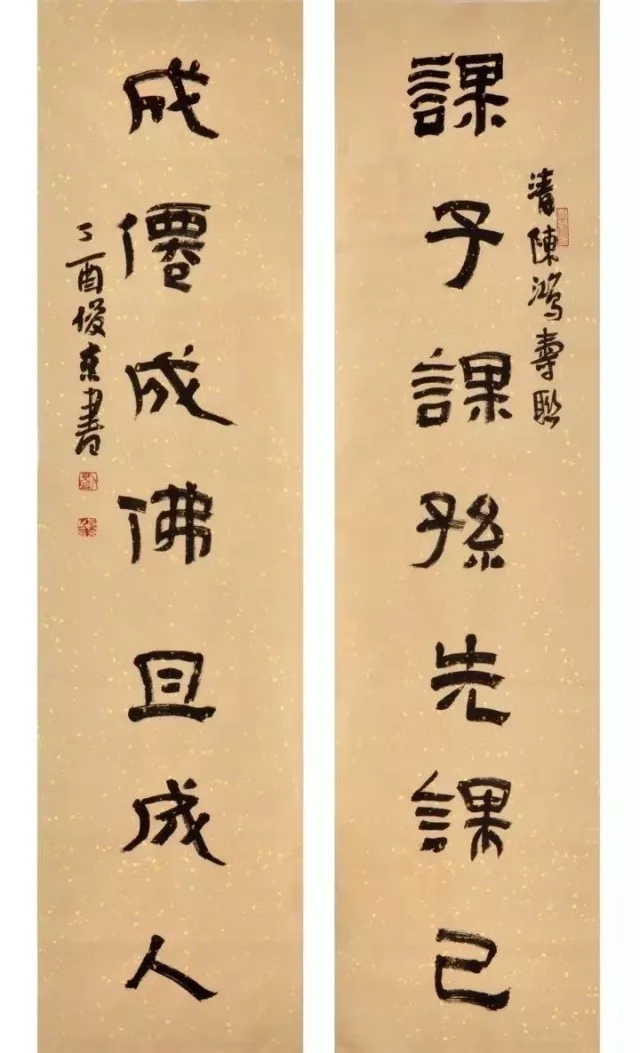 課子課孫先課己
清陳鴻壽聯
成僊成佛且成人
丁酉俊京書